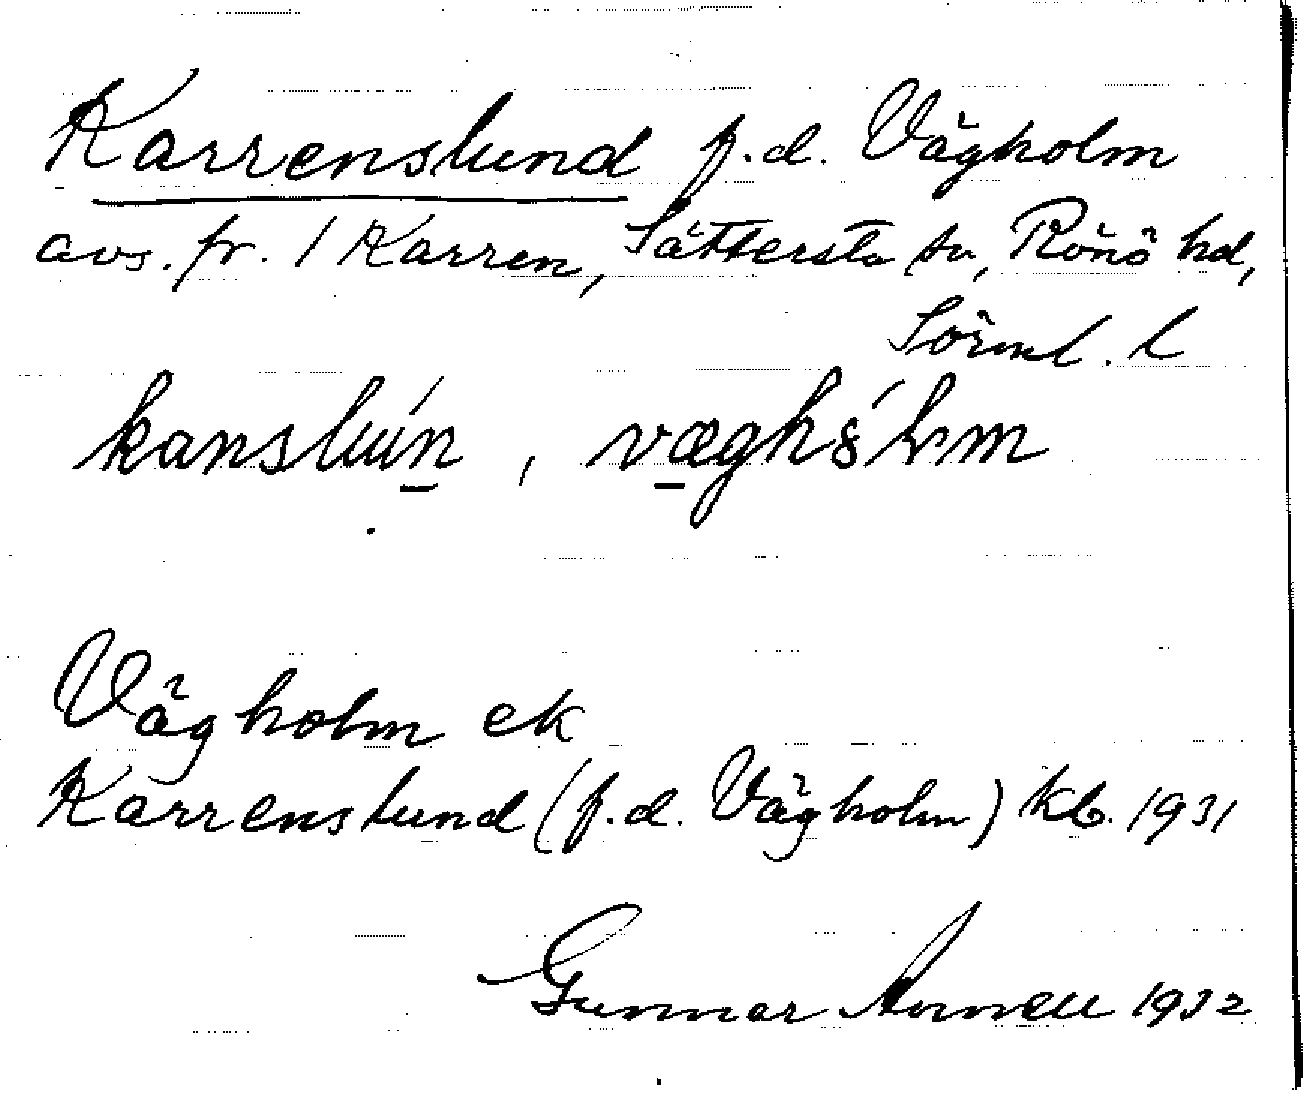 Karrenslund f.d. Vägholm
avs. fr. 1 Karren, Sättersta sn, Rönö hd,
Sörml. l
kanslún, væghólm
Vägholm ek
Karrenslund (f.d. Vägholm) kb. 1931
Gunnar Annell 1932